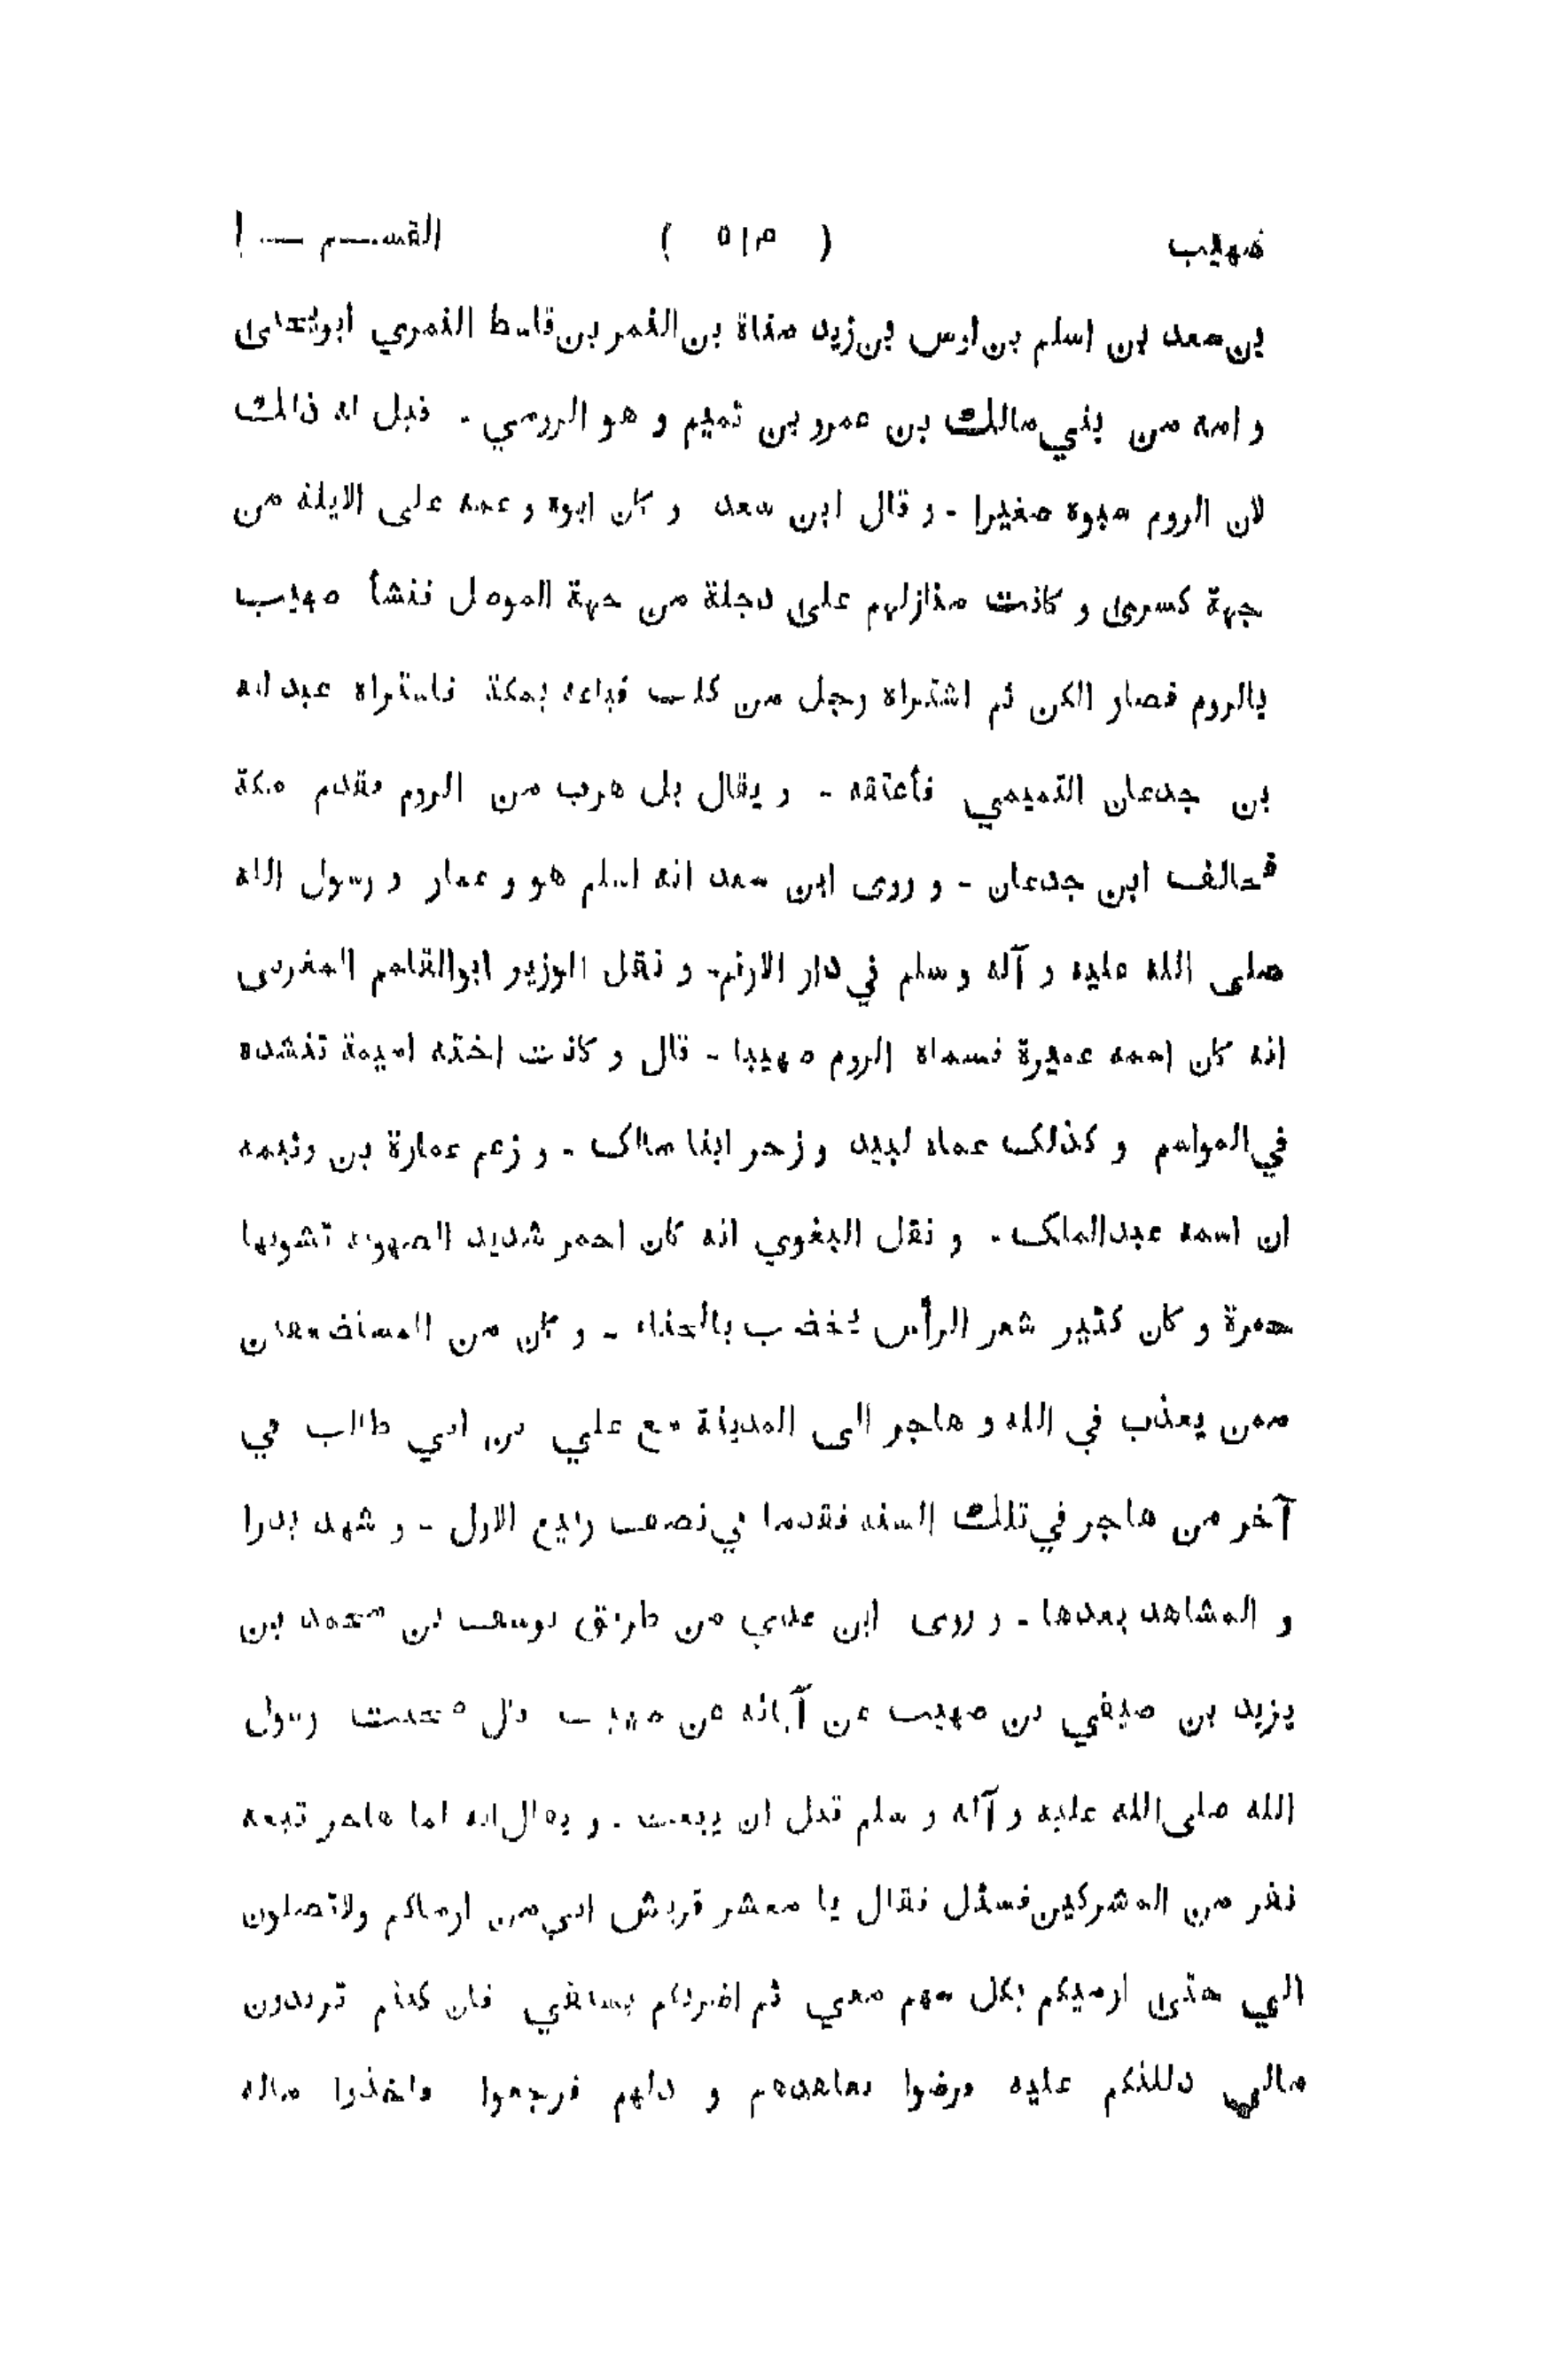 صهيب ( ٥١٣ ) القســم — ا
بن سعد بن اسلم بن اوس بن زيد مناة بن النمر بن قاسط النمري ابو يحيى
و امه من بني مالك بن عمرو بن تميم و هو الرومي - قيل له ذالك
لان الروم سبوه صغيرا - و قال ابن سعد و كان ابوه و عمه على الايلة من
جهة كسرى و كانت منازلهم على دجلة من جهة الموصل فنشأ صهيب
بالروم فصار الكن ثم اشتراه رجل من كلب فباعه بمكة فاشتراه عبد الله
بن جدعان التميمي فأعتقه - و يقال بل هرب من الروم فقدم مكة
فحالف ابن جدعان - و روى ابن سعد انه اسلم هو و عمار و رسول الله
صلى الله عليه و آله و سلم في دار الارقم - و نقل الوزير ابوالقاسم المغربى
انه كان اسمه عميرة فسماه الروم صهيبا - قال و كانت اخته اميمة تنشده
في المواسم و كذلك عماه لبيد و زحر ابنا مالك - و زعم عمارة بن وثيمه
ان اسمه عبدالملك - و نقل البغوي انه كان احمر شديد الصهوبه تشوبها
حمرة و كان كثير شعر الرأس يخضب بالحناء - و كان من المستضعفين
ممن يعذب في الله و هاجر الى المدينة مع علي بن ابي طالب في
آخر من هاجر في تلك السنه فقدما في نصف ربيع الاول - و شهد بدرا
و المشاهد بعدها - و روى ابن عدي من طريق يوسف بن محمد بن
يزيد بن صيفي بن صهيب عن آبائه عن صهيب قال صحبت رسول
الله صلى الله عليه و آله و سلم قبل ان يبعث - و يقال انه لما هاجر تبعه
نفر من المشركين فسئل فقال يا معشر قريش اني من ارماكم ولاتصلون
الي حتى ارميكم بكل سهم معي ثم اضربكم بسيفي فان كنتم تريدون
مالي دللتكم عليه فرضوا فعاهدهم و دلهم فرجعوا فاخذوا ماله